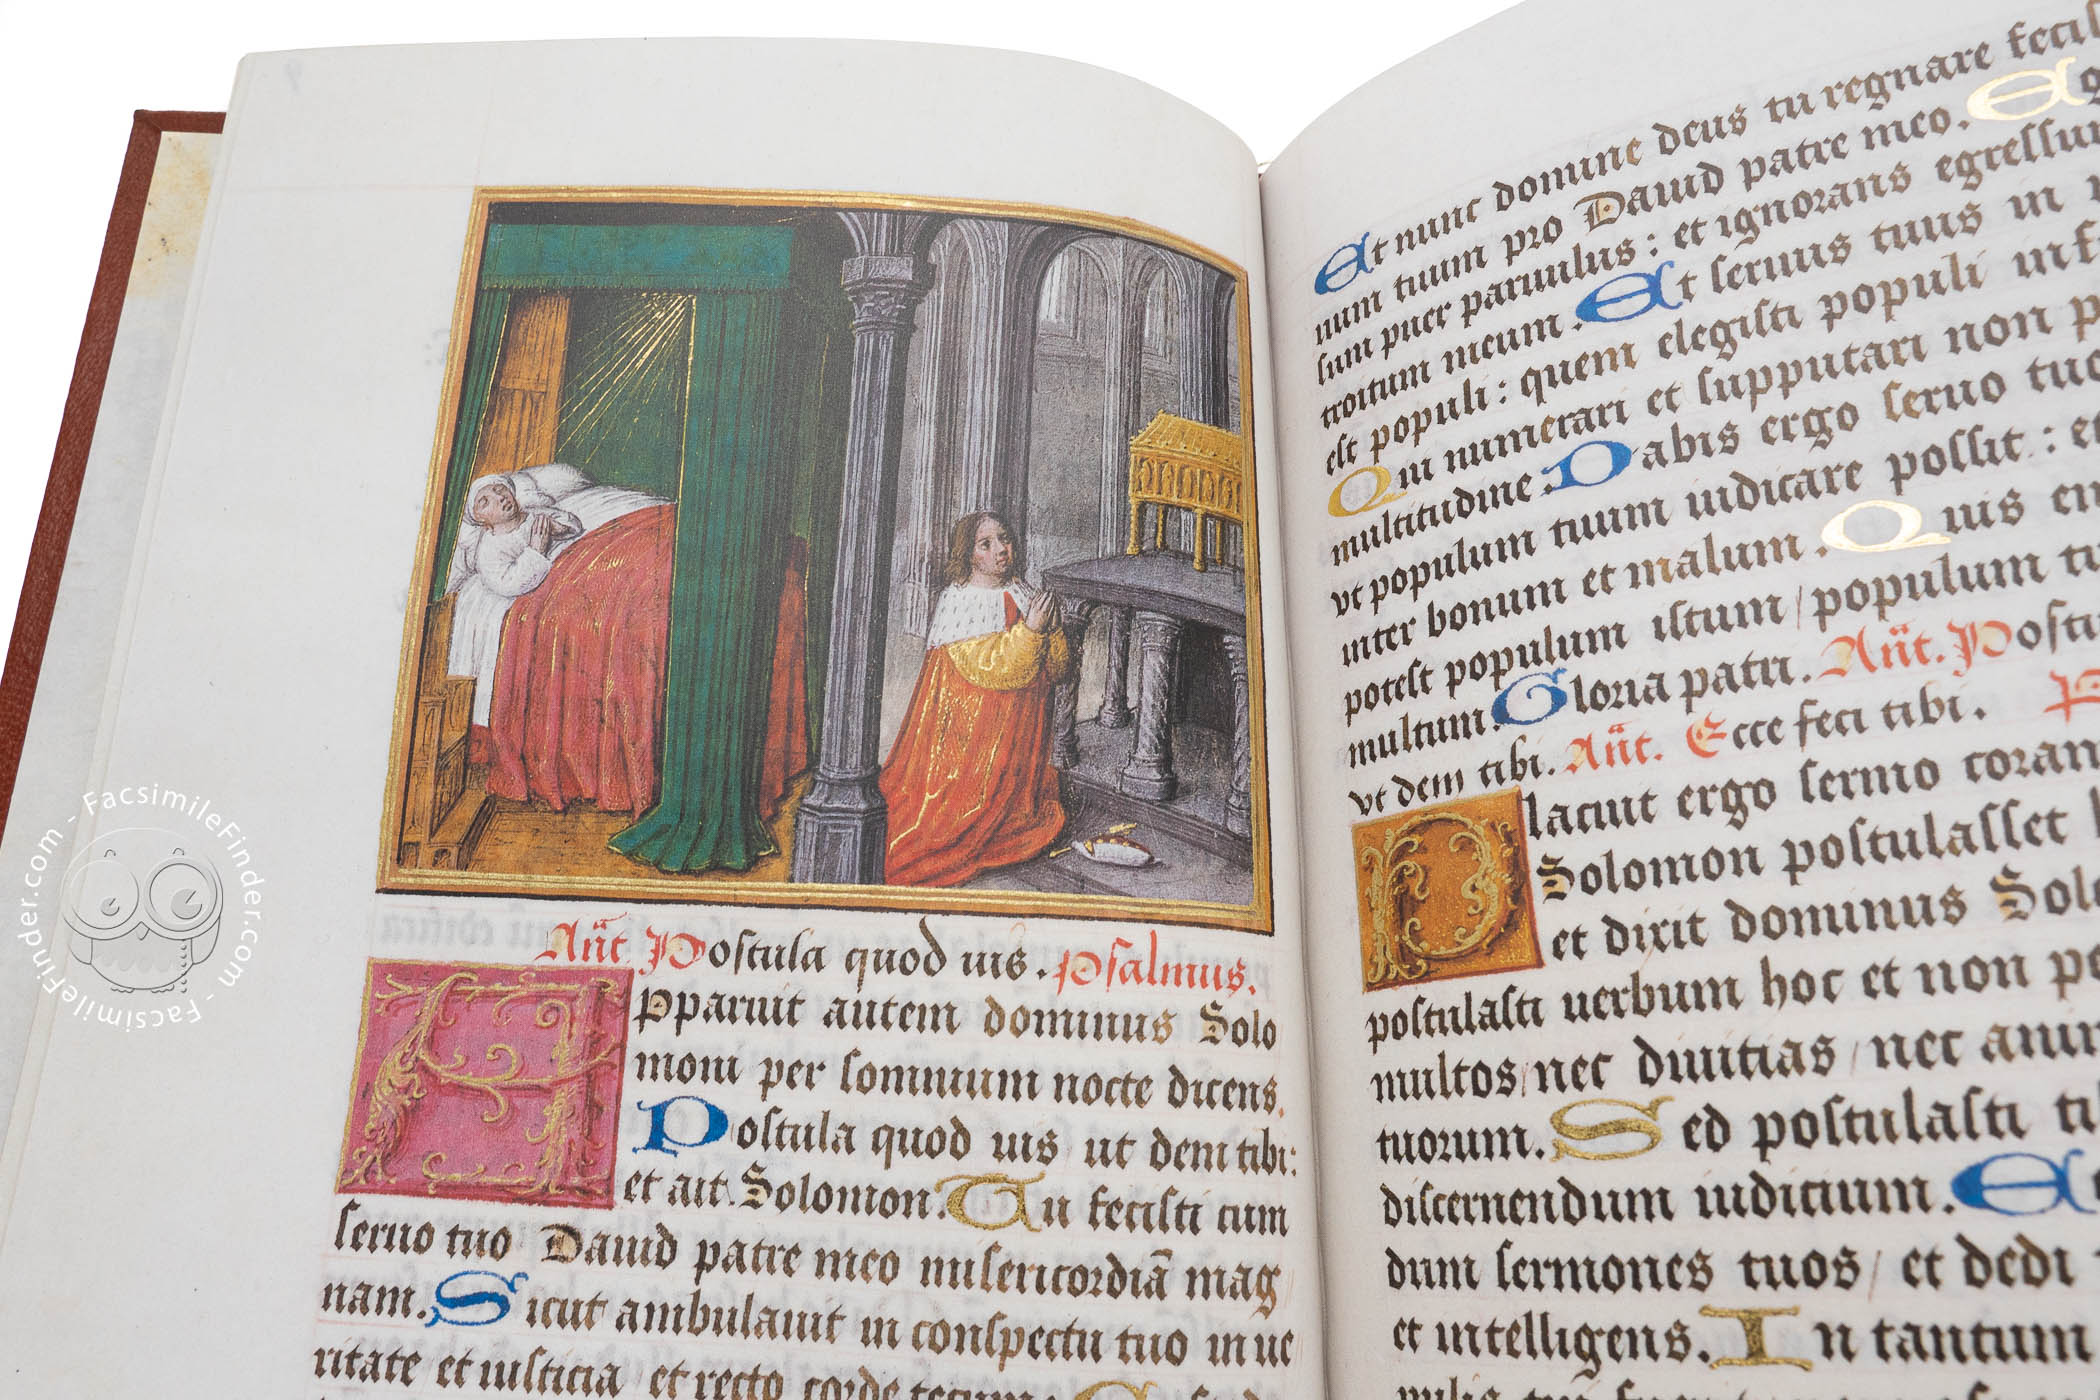 Añt. Postula quod uis. Psalmus.
Apparuit autem dominus Solo
moni per somnium nocte dicens.
Postula quod uis ut dem tibi:
et ait Solomon. Tu fecisti cum
seruo tuo Dauid patre meo misericordiã mag
nam. Sicut ambulauit in conspectu tuo in ue
ritate et iusticia et recto corde tecum:
Et nunc domine deus tu regnare fecis
tuum pro Dauid patre meo.
sum puer paruulus: et ignorans egressum
troitum meum. Et seruus tuus in
est populi: quem elegisti populi
Qui numerari et supputari non
multitudine. Dabis ergo seruo tuo
vt populum tuum iudicare possit: et
inter bonum et malum. Quis
potest populum istum / populum
multum. Gloria patri. Añt. Postu
vt dem tibi. Añt. Ecce feci tibi.
Placuit ergo sermo coram
Solomon postulasset
et dixit dominus Solo
postulasti uerbum hoc et non
multos / nec diuitias / nec
tuorum. Sed postulasti
discernendum iudicium.
dum sermones tuos / et dedi
et intelligens. In tantum
FacsimileFinder.com - FacsimileFinder.com -